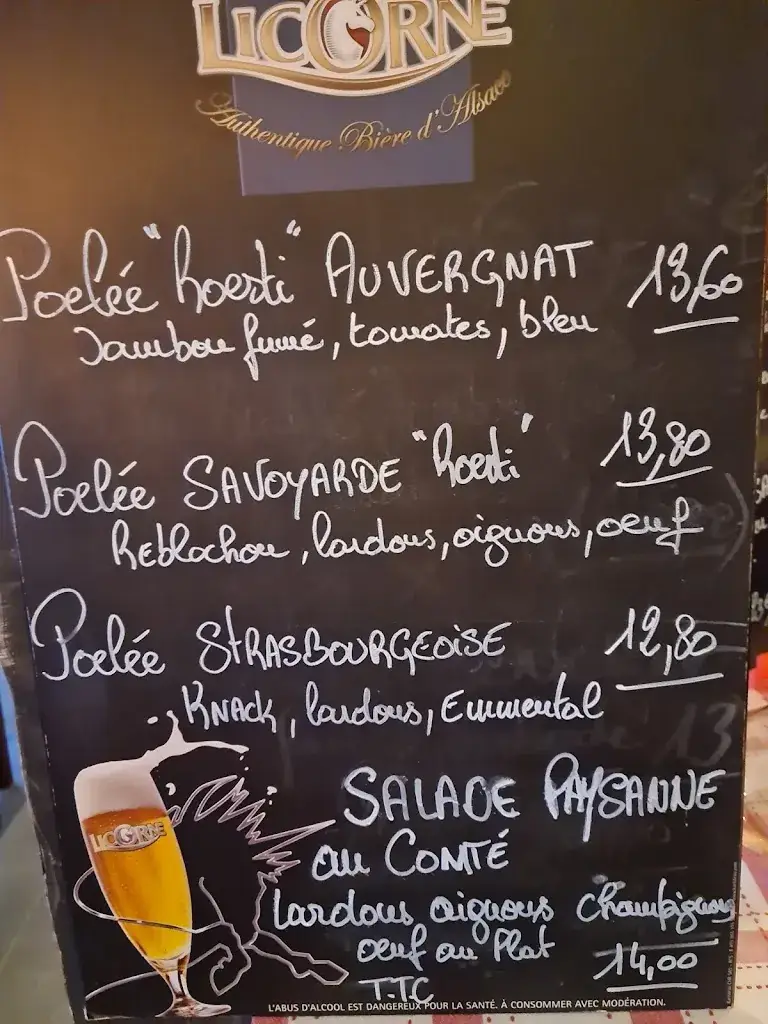 LICORNE
Authentique Bière d'Alsace
Poelée "Roesti" AUVERGNAT 13,60
Jambon fumé, tomates, bleu
Poelée SAVOYARDE "Roesti" 13,80
Reblochon, lardons, oignons, oeuf
Poelée STRASBOURGEOISE 12,80
KNACK, lardons, Emmental
LICORNE
SALADE PAYSANNE
au COMTÉ
lardons oignons champignons
oeuf au Plat 14,00
T.T.C
L'ABUS D'ALCOOL EST DANGEREUX POUR LA SANTÉ. À CONSOMMER AVEC MODÉRATION.